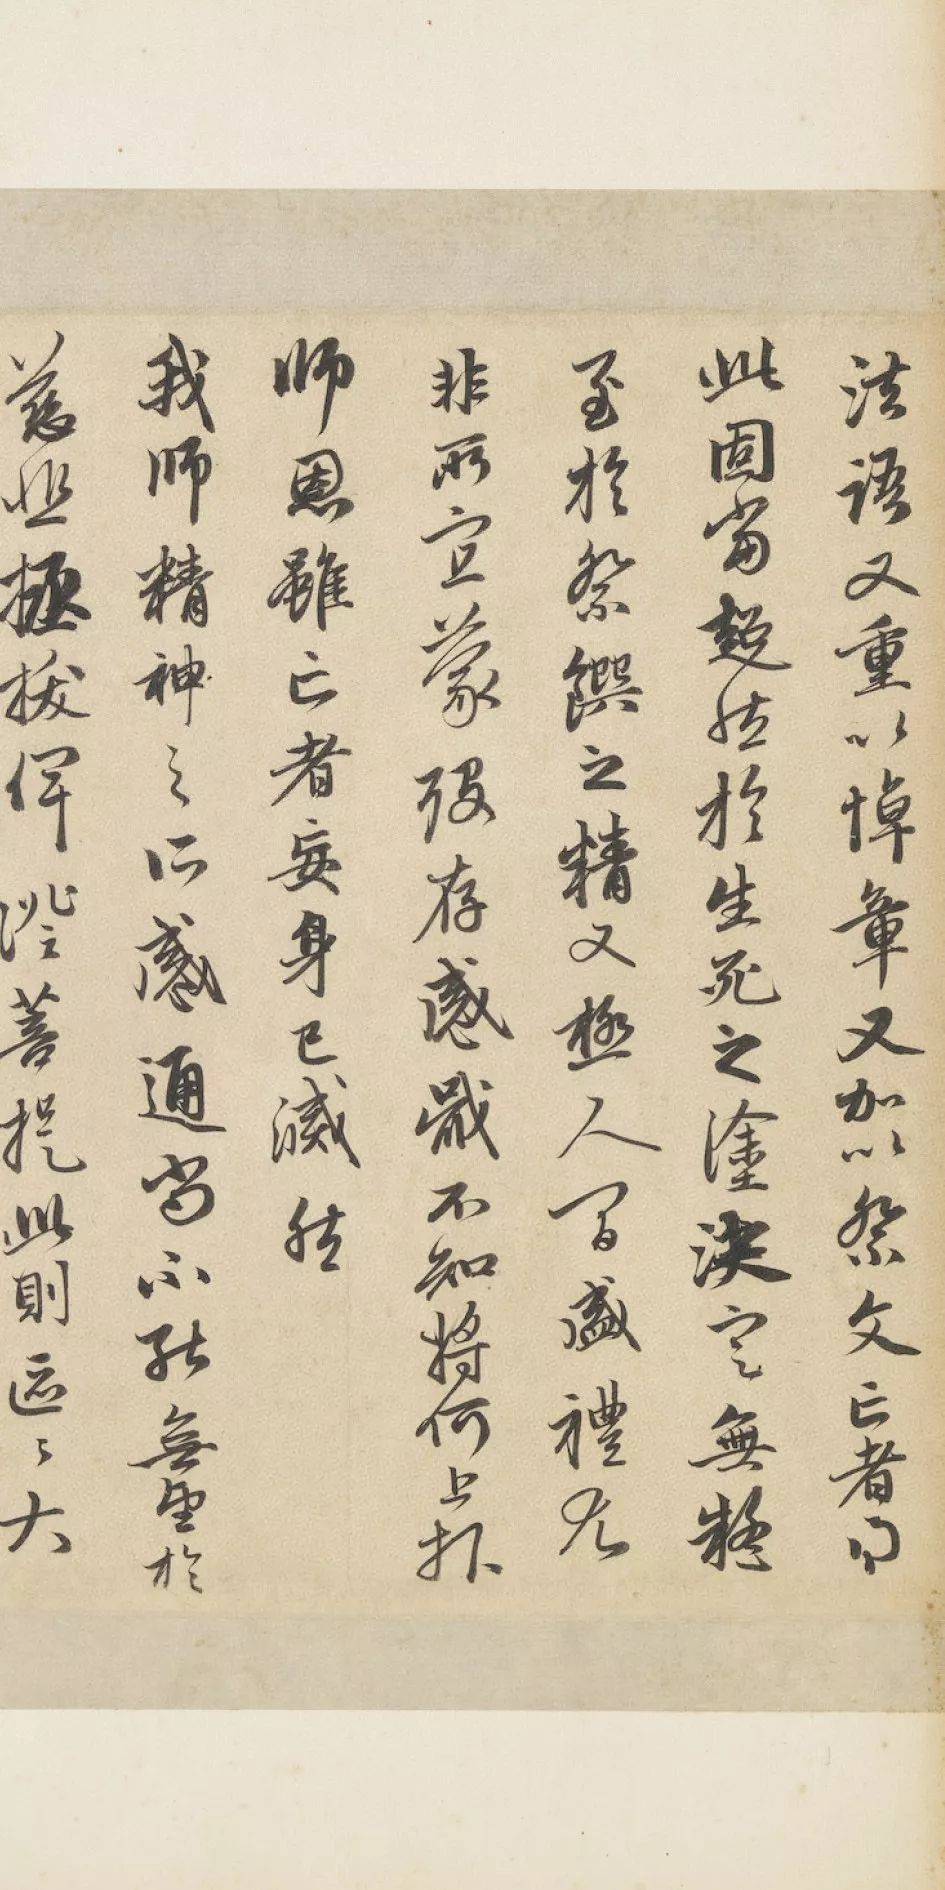 法語又重以悼章又加以祭文亡者聞
此固當超然於生死之塗決定無疑
至於祭饌之精又極人間盛禮尤
非所宜蒙歿存感戢不知將何上報
師恩雖亡者妄身已滅然
我師精神之所感通尚不能無望於
慈悲拯拔俾證菩提此則區〻大